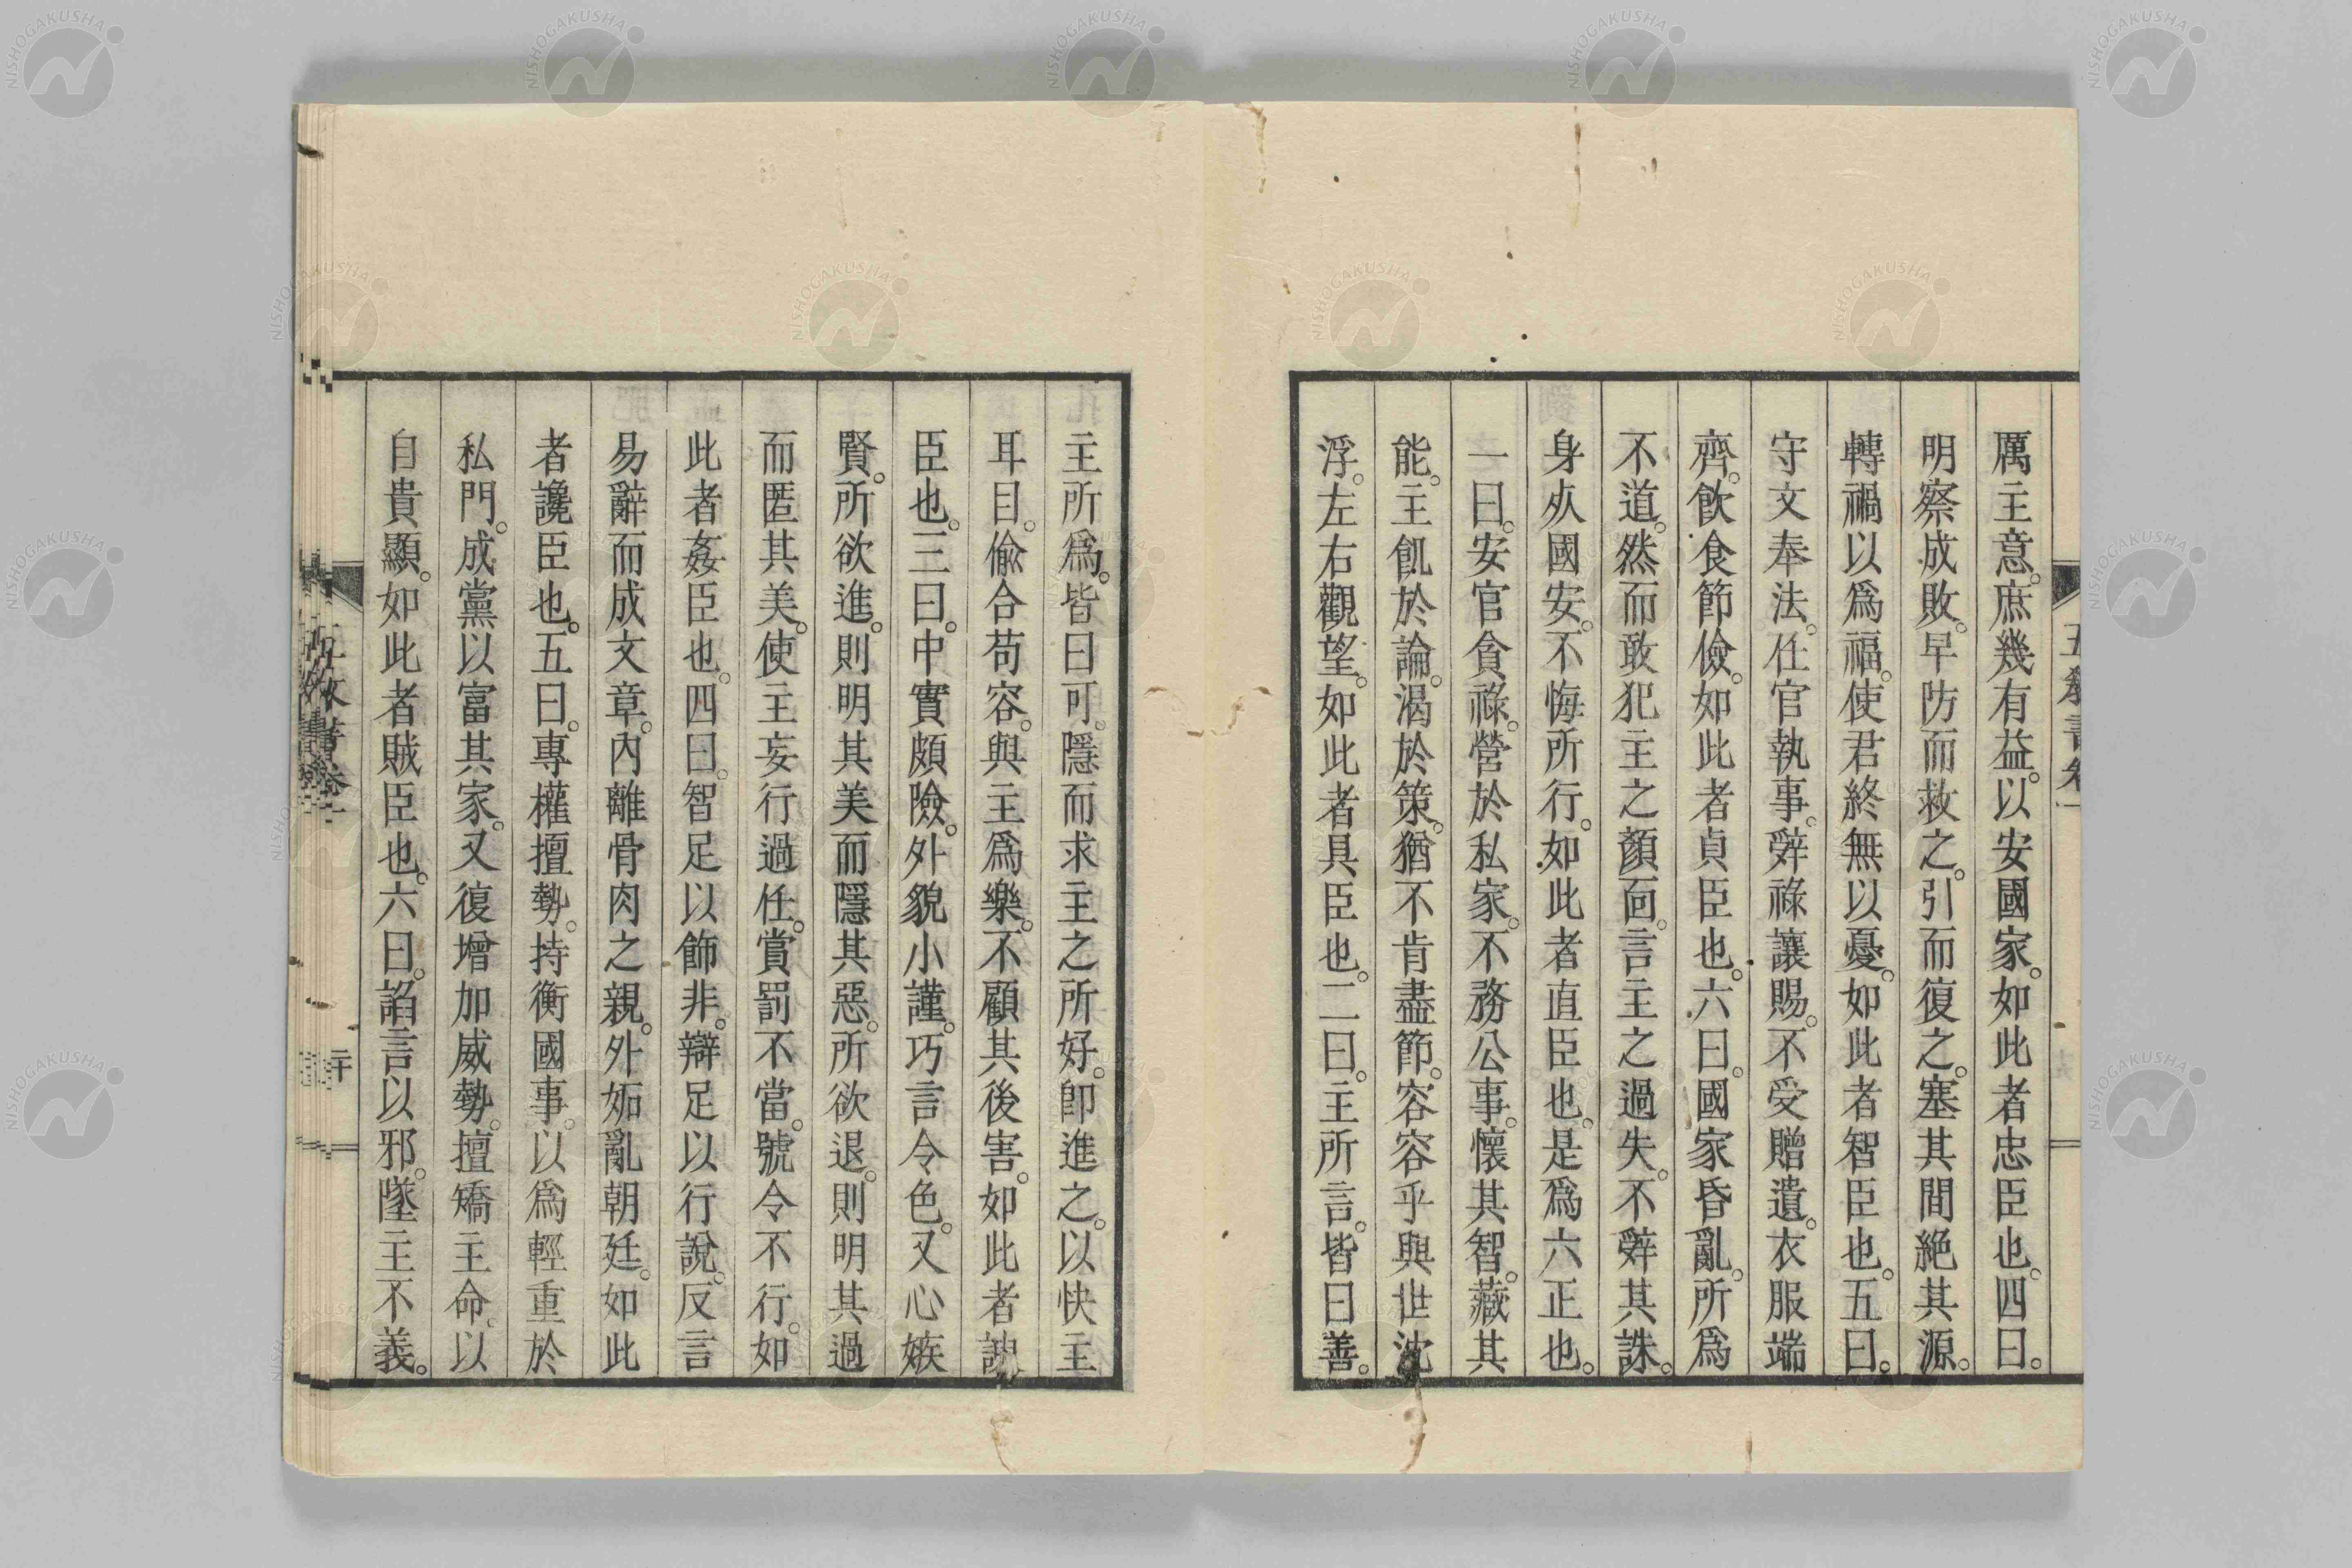 厲主意。庶幾有益。以安國家。如此者忠臣也。四曰。
明察成敗。早防而救之。引而復之。塞其間絕其源。
轉禍以爲福。使君終無以憂。如此者智臣也。五曰。
守文奉法。任官執事。辤祿讓賜。不受贈遺。衣服端
齊。飮食節儉。如此者貞臣也。六曰。國家昏亂。所爲
不道。然而敢犯主之顏面。言主之過失。不辤其誅。
身死國安。不悔所行。如此者直臣也。是爲六正也。
一曰。安官貪祿。營於私家。不務公事。懷其智。藏其
能。主飢於論。渴於策。猶不肯盡節。容容乎與世沈
浮。左右觀望。如此者具臣也。二曰。主所言。皆曰善。
主所爲。皆曰可。隱而求主之所好。卽進之。以快主
耳目。偸合苟容。與主爲樂。不顧其後害。如此者諛
臣也。三曰。中實頗險。外貌小謹。巧言令色。又心嫉
賢。所欲進。則明其美而隱其惡。所欲退。則明其過
而匿其美。使主妄行過任。賞罰不當。號令不行。如
此者姦臣也。四曰。智足以飾非。辯足以行說。反言
易辭而成文章。內離骨肉之親。外妬亂朝廷。如此
者讒臣也。五曰。專權擅勢。持衡國事。以爲輕重於
私門。成黨以富其家。又復增加威勢。擅矯主命。以
自貴顯。如此者賊臣也。六曰。諂言以邪。墜主不義。
二十
NISHOGAKUSHA